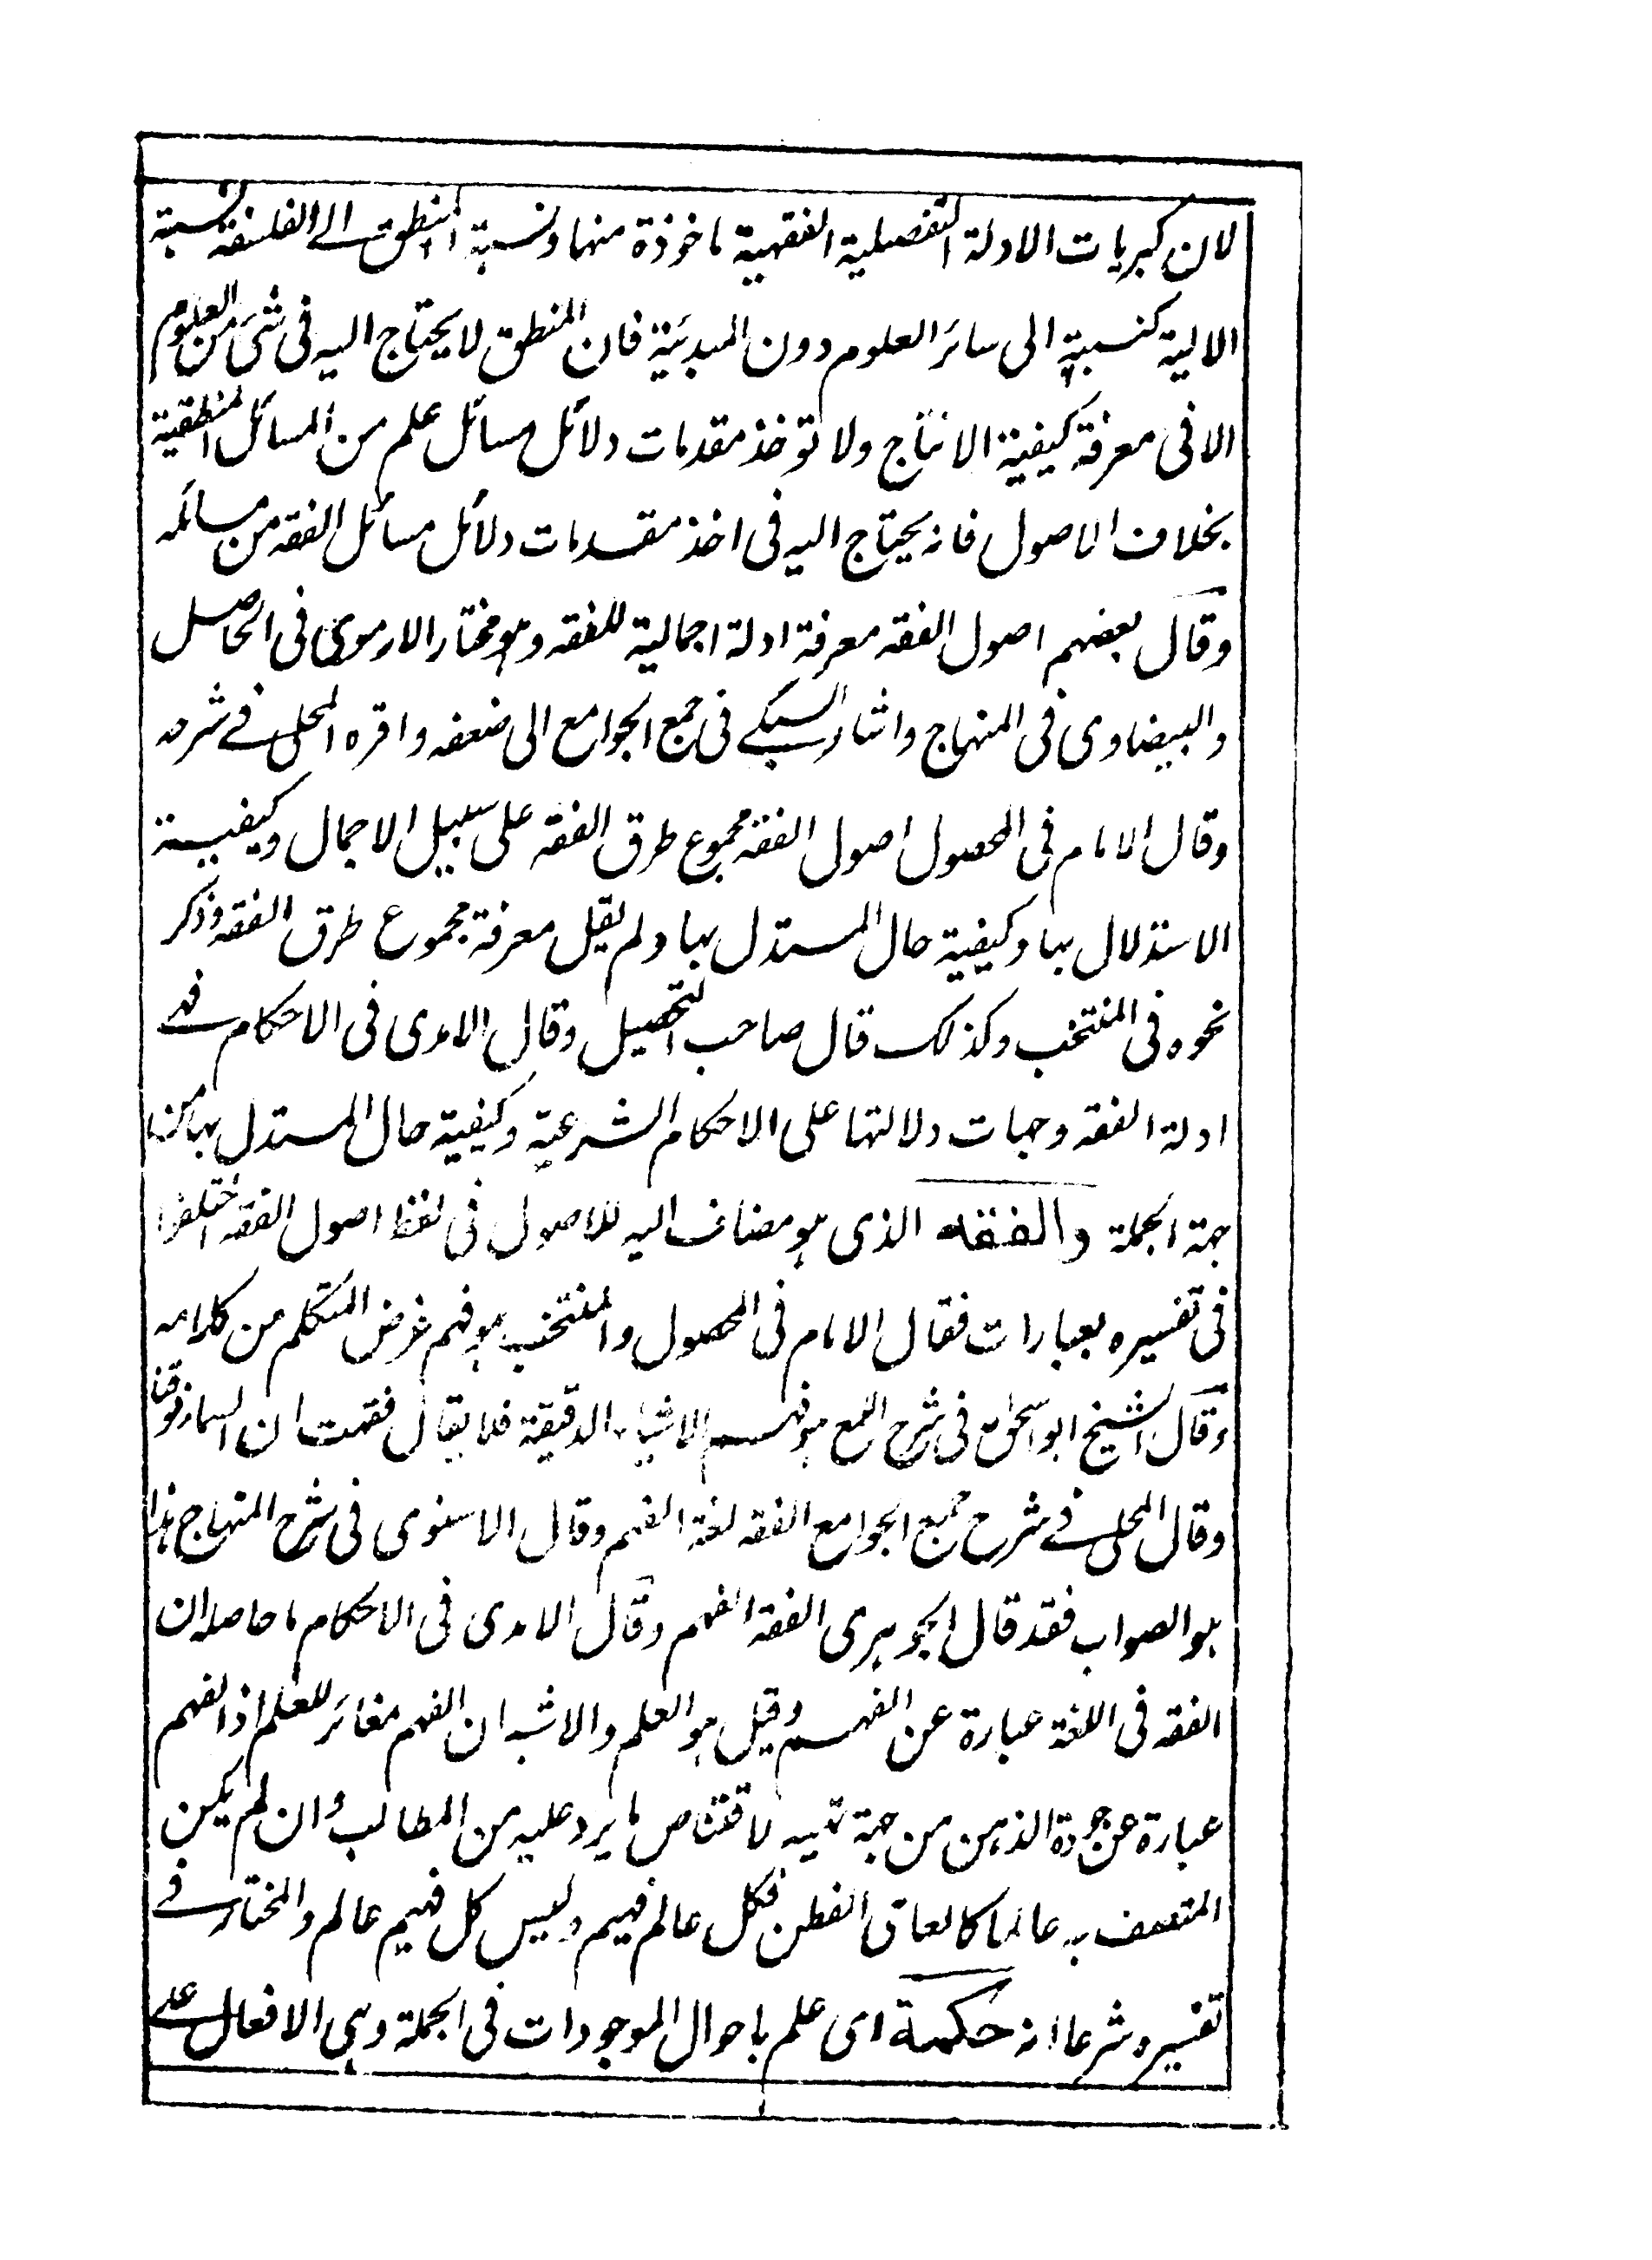 لان كبريات الادلة التفصيلية الفقهية ماخوذة منها ونسبة المنطق الى الفلسفة نسبة
الالية كنسبته الى سائر العلوم دون المبدئية فان المنطق لا يحتاج اليه فى شئ من العلوم
الا فى معرفة كيفية الانتاج ولا توخذ مقدمات دلائل مسائل علم من المسائل المنطقية
بخلاف الاصول فانه يحتاج اليه فى اخذ مقدمات دلائل مسائل الفقه من مسائله
وقال بعضهم اصول الفقه معرفة ادلة اجمالية للفقه وهو مختار الارموى فى الحاصل
والبيضاوى فى المنهاج واشار السبكى فى جمع الجوامع الى ضعفه واقره المحلى فى شرحه
وقال الامام فى المحصول اصول الفقه مجموع طرق الفقه على سبيل الاجمال وكيفية
الاستدلال بها وكيفية حال المستدل بها ولم يقل معرفة مجموع طرق الفقه وذكر
نحوه فى المنتخب وكذلك قال صاحب التحصيل وقال الامدى فى الاحكام هى
ادلة الفقه وجهات دلالتها على الاحكام الشرعية وكيفية حال المستدل بها من
جهة الجملة والفقه الذى هو مضاف اليه للاصول فى لفظ اصول الفقه اختلفوا
فى تفسيره بعبارات فقال الامام فى المحصول والمنتخب هو فهم غرض المتكلم من كلامه
وقال الشيخ ابو اسحاق فى شرح اللمع هو فهم الاشياء الدقيقة فلا يقال فقهت ان السماء فوقنا
وقال المحلى فى شرح جمع الجوامع الفقه لغة الفهم وقال الاسنوى فى شرح المنهاج هذا
هو الصواب فقد قال الجوهرى الفقه الفهم وقال الامدى فى الاحكام ما حاصله ان
الفقه فى اللغة عبارة عن الفهم وقيل هو العلم والاشبه ان الفهم مغائر للعلم اذ الفهم
عبارة عن جودة الذهن من جهة تهيئه لاقتناص ما يرد عليه من المطالب وان لم يكن
المتصف به عالما كالعامى الفطن فكل عالم فهيم وليس كل فهيم عالم والمختار فى
تفسيره شرعا انه حكمة اى علم باحوال الموجودات فى الجملة وهى الافعال على